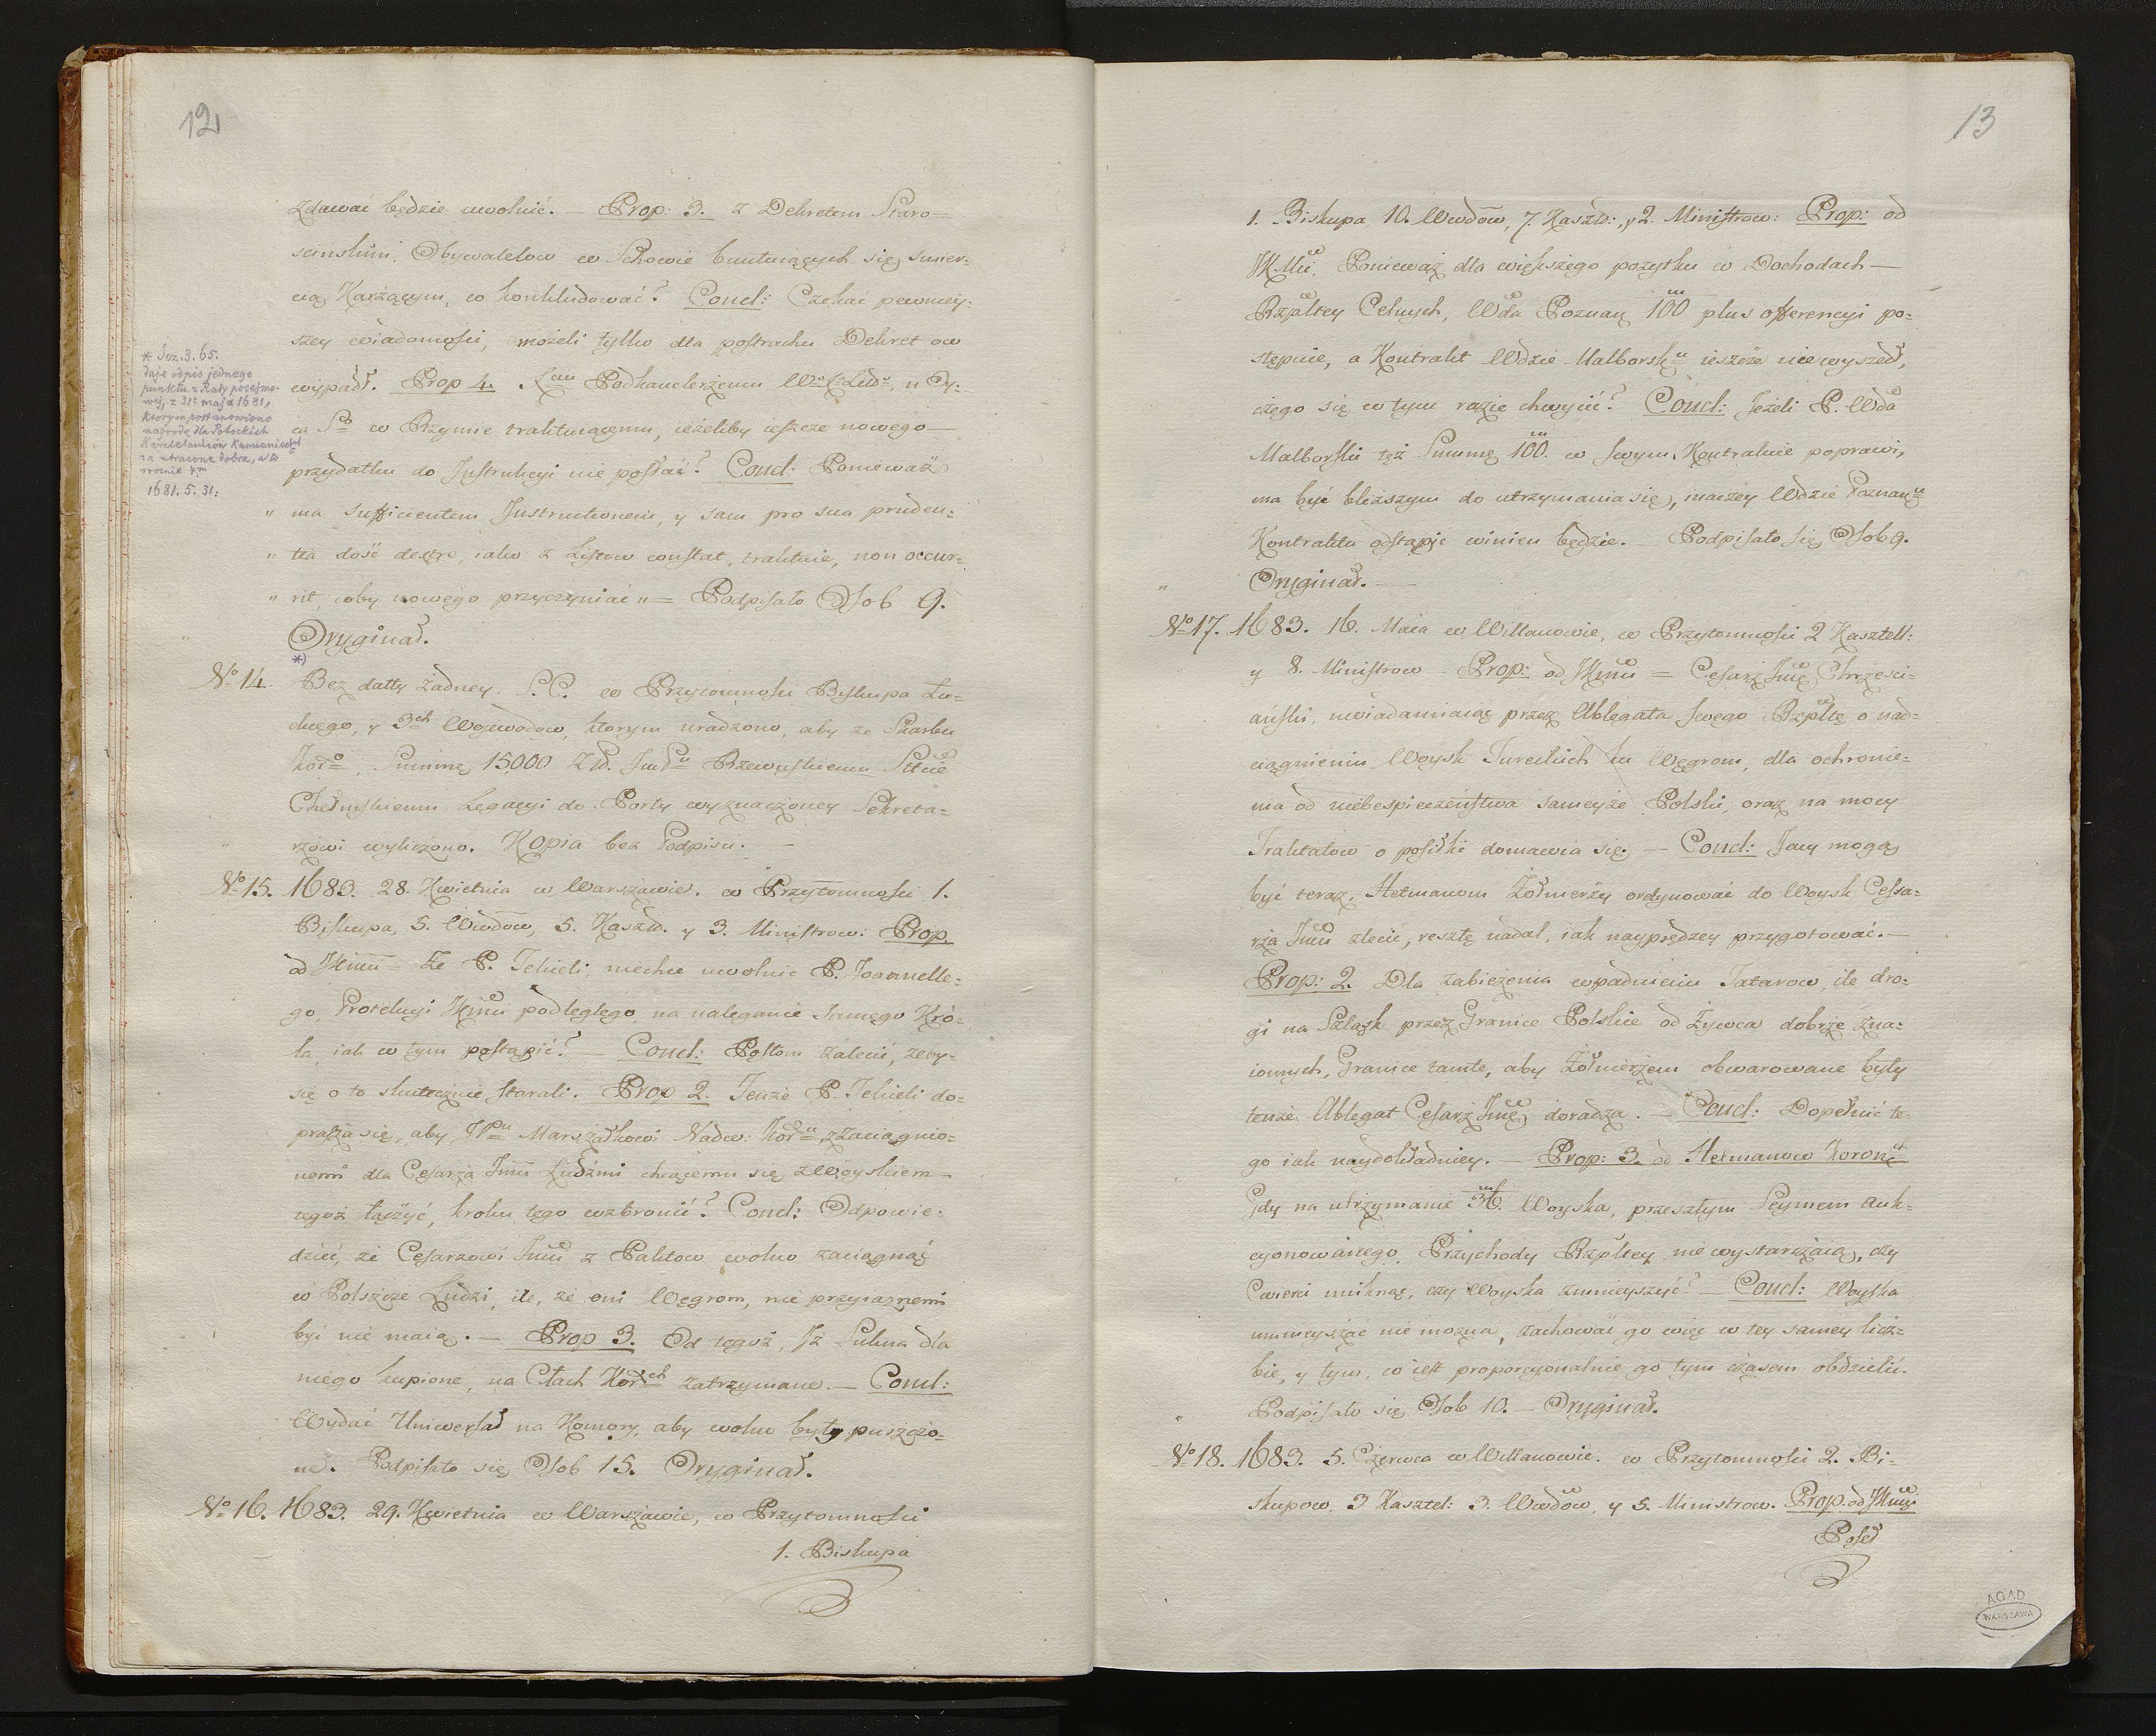 12
zdawać będzie uwolnić. — Prop: 3. z Dekretem Staro=
scińskim, Obywatelow w Schowie buntuiących się smier=
cią Karżącym, co konkludować? Concl: Czekać pewniey=
szey wiadomości, możeli tylko dla postrachu Dekret ow
wypadł. Prop 4. Podkanclerzemu
w Rzymie traktuiącemu, ieżeliby ieszcze nowego—
przydatku do Instrukcyi nie posłać? Concl: Ponieważ
„ ma sufficientem Instructionem, y sam pro sua pruden=
„ tia dość dextre, iako z Listow constat, traktuie, non occur=
„ rit, coby nowego przyczyniać „ = Podpisało Osob 9.
Oryginał.
* Sez. 3. 65.
daje odpis jednego
punktu z Rady posejmo-
wej, z 31º maja 1681,
ktorym postanowiono
nagrodę dla Potockich
Kasztelaniców Kamienieckich
za utracone dobra,
rocznie
1681. 5. 31.
*)
No 14. Bez datty żadney. S.C. w Przytomności Biskupa Łu=
ckiego, y 3ch Woiewodow, ktorym uradzono, aby ze Skarbu
Kor:o Summę 15000 Zł. Rzewuskiemu Sttcie
Chełmskiemu Legacyi do Porty wyznaczoney Sekreta=
rzowi wyliczono. Kopia bez Podpisu. —
No 15. 1683. 28. Kwietnia w Warszawie. w Przytomności 1.
Biskupa, 5. Wwdow, 5. Kasztl. y 3. Ministrow: Prop.
od JKmci = Ze P. Tekieli, niechce uwolnić P. Joannelle=
go, Protekcyi JKmci podległego na naleganie Samego Kró=
la, iak w tym postąpić? — Concl: Posłom zalecić, żeby=
się o to skutecznie starali. Prop 2. Tenże P. Tekieli do=
prasza się, aby JPu Marszałkowi Nadw: Kor:u z zaciągnio=
nemi dla Cesarza Jmci Ludźmi chcącemu się z Woyskiem—
tegoż łączyć, kroku tego wzbronić? Concl: Odpowie=
dzieć, że Cesarzowi Jmci z Paktow wolno zaciągnąć
w Polszcze Ludzi, ile, że oni Węgrom, nie przyiaznemi
być nie maią. — Prop 3. Od tegoż, Iż Sukna dla
niego kupione, na Cłach Kor:ch zatrzymane. — Concl:
Wydać Uniwersał na Komory, aby wolno były puszczo=
ne. Podpisało się Osob 15. Oryginał.
No 16. 1683. 29. Kwietnia w Warszawie, w Przytomności
1. Biskupa
13
1. Biskupa, 10. Wwdow, 7. Kasztl:, y 2. Ministrow: Prop: od
JKMci, Ponieważ dla większego pożytku w Dochodach—
Rzpltey Celnych, Wda Poznań: 100 m plus offerencyi po=
stępuie, a Kontrakt Wdzie Malborsk:u ieszcze nie wyszedł,
czego się w tym razie chwycić? Concl: Jeżeli P. Wda
Malborski też Summę 100 m. w swym Kontrakcie poprawi,
ma być bliższym do utrzymania się, inaczey Wdzie Poznań:u
Kontraktu odstąpić winien będzie. — Podpisało się Osob 9.
Oryginał. —
No 17. 1683. 16. Maia w Willanowie, w Przytomności 2 Kasztell:
y 8. Ministrow — Prop: od JKmci = Cesarz Jmć Chrześci=
ański, uwiadamiaiąc przez Ablegata swego Rzpltę o nad=
ciągnieniu Woysk Tureckich ku Węgrom, dla ochronie=
nia od niebespieczeństwa sameyże Polski, oraz na mocy
Traktatow o posiłki domawia się. — Concl: Jacy mogą
być teraz, Hetmanom Żołnierzy ordynować do Woysk Cesa=
rza Jmci zlecić, resztę nadal, iak nayprędzey przygotować. —
Prop: 2. Dla zabieżenia wpadnieniu Tatarow, ile dro=
gi na Szląsk przez Granice Polskie od Żywca dobrze zna=
iomych, Granice tamte, aby Żołnierzem obwarowane były
tenże Ablegat Cesarz: Jmci doradza. — Concl: Dopełnić te=
go iak naydokładniey. — Prop: 3. od Hetmanow Koron:ch
Gdy na utrzymanie 36 m. Woyska, przeszłym Seymem auk=
cyonowanego, Przychody Rzpltey nie wystarszaią, czy
Cwierci umknąć, czy Woyska zmnieyszyć? — Concl: Woyska
umnieyszać nie można, zachować go więc w tey samey licz=
bie, y tym, co iest proporcyonalnie go tym czasem obdzielić.
Podpisało się Osob 10. — Oryginał.
No 18. 1683. 5. Czerwca w Willanowie. w Przytomności 2. Bi=
skupow, 3 Kasztel: 3. Wwdow, y 5. Ministrow. Prop. od JKmci.
Poseł
AGAD
WARSZAWA